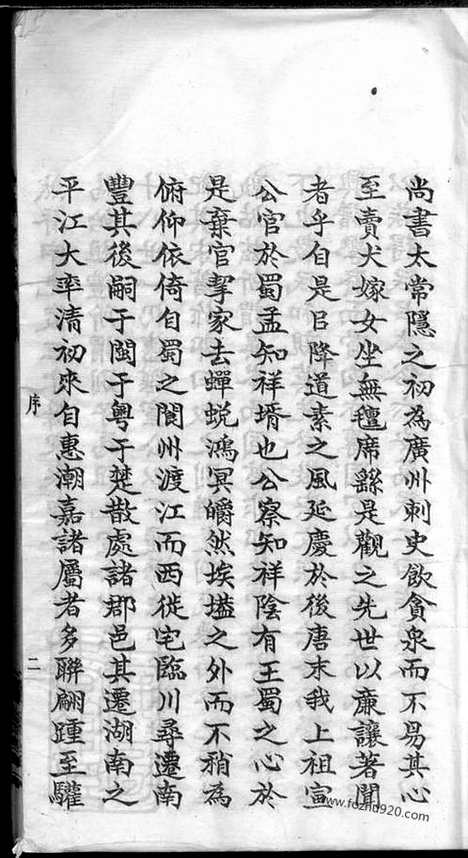 尚書太常隱之初為廣州刺史飲貪泉而不易其心
至賣犬嫁女坐無氊席繇是觀之先世以廉讓著聞
者乎自是㠯降道素之風延慶於後唐末我上祖宣
公官於蜀孟知祥壻也公察知祥陰有王蜀之心於
是棄官挈家去蟬蛻鴻冥皭然埃壒之外而不稍為
俯仰依倚自蜀之閬州渡江而西徙宅臨川尋遷南
豐其後嗣于閩于粵于楚散處諸郡邑其遷湖南之
平江大率清初來自惠潮嘉諸屬者多聯翩踵至驩
序
二
www.fozhu920.com